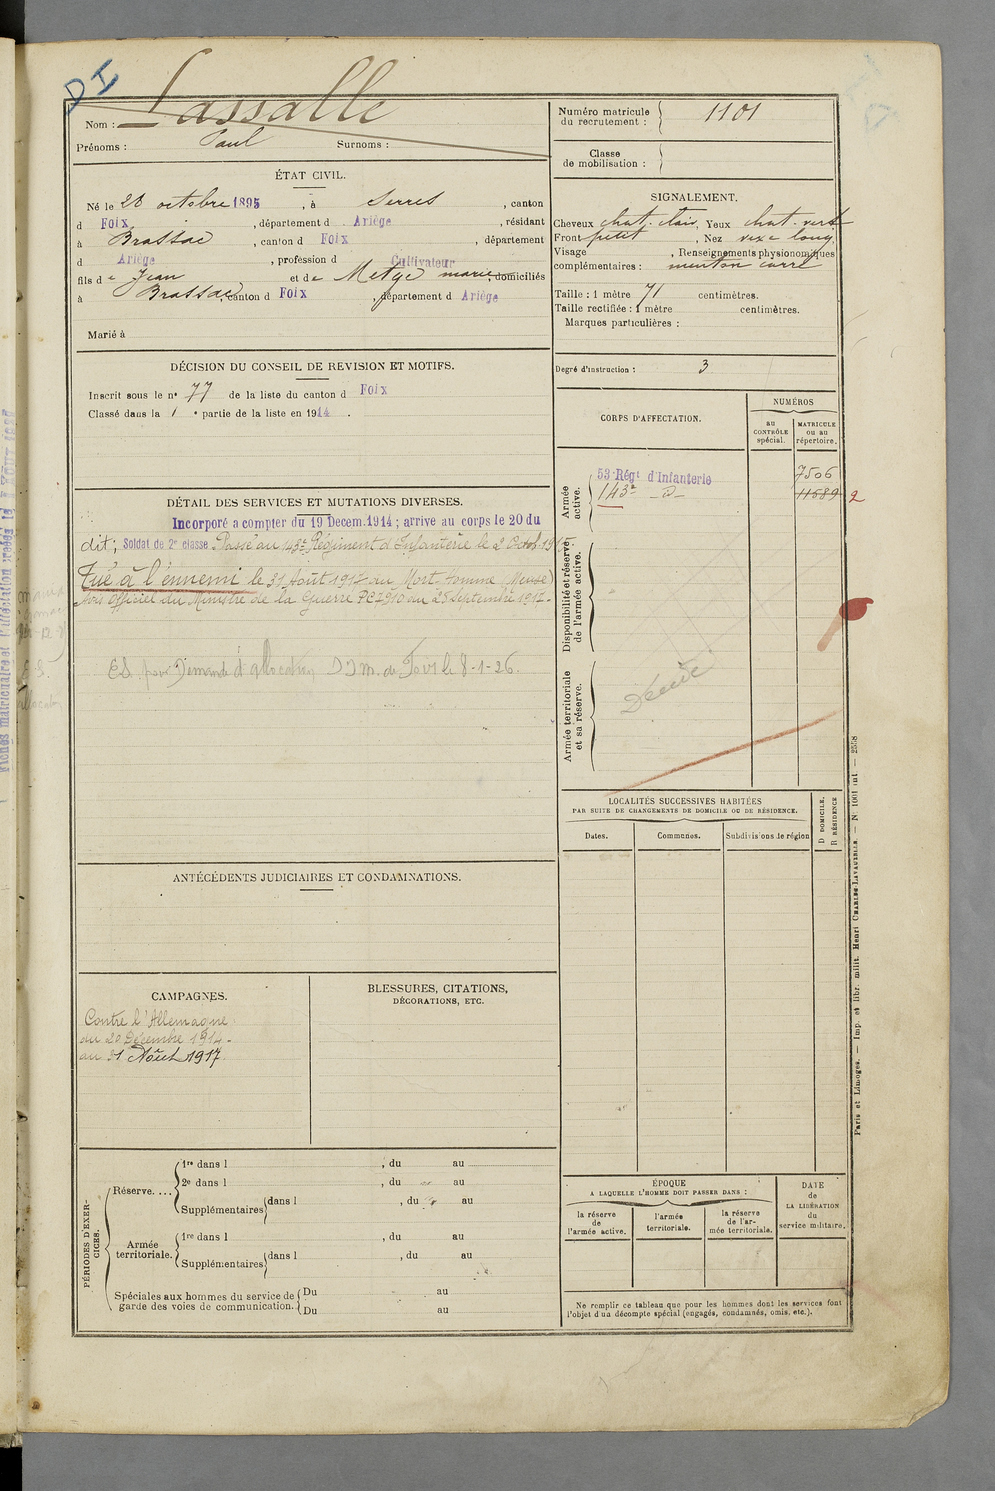 DI
Nom : Lassalle
Prénoms : Paul Surnoms :
Numéro matricule du recrutement : 1101
Classe de mobilisation :
ÉTAT CIVIL.
Né le 28 octobre 1895, à Serres, canton
d Foix, département d Ariège, résidant
à Brassac, canton d Foix, département
d Ariège, profession d Cultivateur
fils de Jean et de Metge marie, domiciliés
à Brassac canton d Foix, département d Ariège
Marié à
SIGNALEMENT.
Cheveux chat. clair, Yeux chat. vert
Front petit, Nez long
Visage , Renseignements physionomiques
complémentaires : menton carré
Taille : 1 mètre 71 centimètres.
Taille rectifiée : 1 mètre centimètres.
Marques particulières :
Degré d'instruction : 3
DÉCISION DU CONSEIL DE REVISION ET MOTIFS.
Inscrit sous le n° 77 de la liste du canton d Foix
Classé dans la 1 e partie de la liste en 1914.
CORPS D'AFFECTATION.
NUMÉROS
au CONTRÔLE spécial.
MATRICULE ou au répertoire.
Armée active.
53e Régt d'Infanterie 7506
143e -d- 11689 2
Disponibilité et réserve de l'armée active.
Armée territoriale et sa réserve.
Décédé
DÉTAIL DES SERVICES ET MUTATIONS DIVERSES.
Incorporé a compter du 19 Decem.1914 ; arrivé au corps le 20 du
dit, Soldat de 2e classe. Passé au 143e Régiment d'Infanterie le 2 Octob. 1915.
Tué à l'ennemi le 31 Août 1917 au Mort-Homme (Meuse)
Avis officiel du Ministre de la Guerre du 25 Septembre 1917.
ES pour Demande d'allocation D I M. de Foix le 8-1-26.
LOCALITÉS SUCCESSIVES HABITÉES
PAR SUITE DE CHANGEMENTS DE DOMICILE OU DE RÉSIDENCE.
Dates. Communes. Subdivisions de région D DOMICILE. R RÉSIDENCE
ANTÉCÉDENTS JUDICIAIRES ET CONDAMNATIONS.
CAMPAGNES.
Contre l'Allemagne
du 20 Décembre 1914-
au 31 Août 1917
BLESSURES, CITATIONS,
DÉCORATIONS, ETC.
PÉRIODES D'EXERCICES.
Réserve....
1re dans l , du au
2e dans l , du au
Supplémentaires dans l , du au
Armée territoriale.
1re dans l , du au
Supplémentaires dans l , du au
Spéciales aux hommes du service de garde des voies de communication.
Du au
Du au
ÉPOQUE
A LAQUELLE L'HOMME DOIT PASSER DANS :
la réserve de l'armée active.
l'armée territoriale.
la réserve de l'armée territoriale.
DATE de LA LIBÉRATION du service militaire.
Ne remplir ce tableau que pour les hommes dont les services font
l'objet d'un décompte spécial (engagés, condamnés, omis, etc.).
Paris et Limoges. — Imp. et libr. milit. Henri CHARLES-LAVAUZELLE. — N 1001 int. — 2558